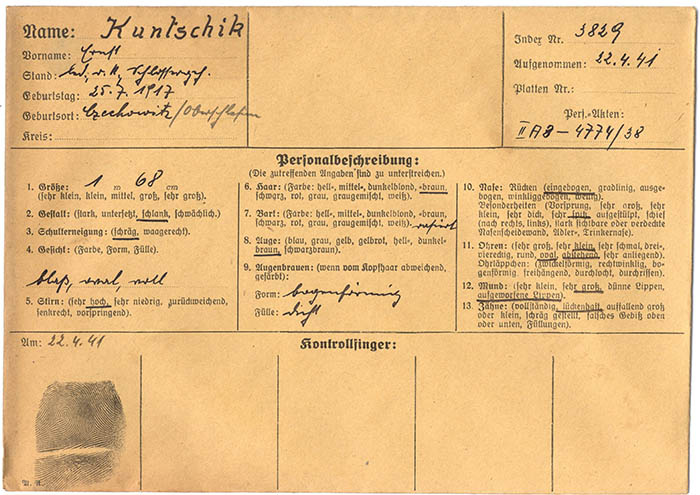 Name: Kuntschik
Vorname: Ernst
Stand: led. r. K. Schlosserges.
Geburtstag: 25.7.1917
Geburtsort: Czechowitz/Oberschlesien
Kreis:
Index Nr. 3829
Aufgenommen: 22.4.41
Platten Nr.:
Pers.-Akten:
II A 8 – 4774/38
Personalbeschreibung:
(Die zutreffenden Angaben sind zu unterstreichen.)
1. Größe: 1 m 68 cm
(sehr klein, klein, mittel, groß, sehr groß).
2. Gestalt: (stark, untersetzt, schlank, schwächlich).
3. Schulterneigung: (schräg, waagerecht).
4. Gesicht: (Farbe, Form, Fülle).
blaß, oval, voll
5. Stirn: (sehr hoch, sehr niedrig, zurückweichend,
senkrecht, vorspringend).
6. Haar: (Farbe: hell-, mittel-, dunkelblond, -braun,
schwarz, rot, grau, graugemischt, weiß).
7. Bart: (Farbe: hell-, mittel-, dunkelblond, -braun,
schwarz, rot, grau, graugemischt, weiß). rasiert
8. Auge: (blau, grau, gelb, gelbrot, hell-, dunkel-
braun, schwarzbraun).
9. Augenbrauen: (wenn vom Kopfhaar abweichend,
gefärbt):
Form: bogenförmig
Fülle: dicht
10. Nase: Rücken (eingebogen, gradlinig, ausge-
bogen, winkliggebogen, wellig).
Besonderheiten (Vorsprung, sehr groß, sehr
klein, sehr dick, sehr spitz, aufgestülpt, schief
(nach rechts, links), stark sichtbare oder verdeckte
Nasenscheidewand, Adler-, Trinkernase).
11. Ohren: (sehr groß, sehr klein, sehr schmal, drei-,
viereckig, rund, oval, abstehend, sehr anliegend).
Ohrläppchen: (zwickelförmig, rechtwinklig, bo-
genförmig freihängend, durchlocht, durchrissen).
12. Mund: (sehr klein, sehr groß, dünne Lippen,
aufgeworfene Lippen).
13. Zähne: (vollständig, lückenhaft, auffallend groß
oder klein, schräg gestellt, falsches Gebiß oben
oder unten, Füllungen).
Am: 22.4.41
Kontrollfinger: